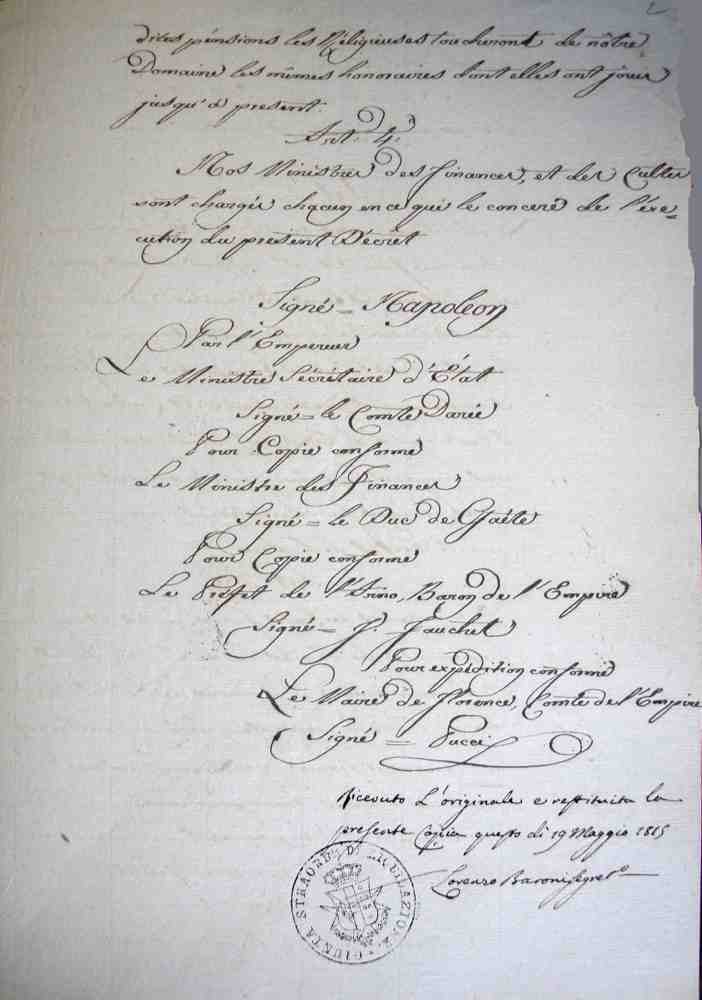 2
dites pénsions les Réligieuses toucheront de nôtre
Domaine les mêmes honoraires dont elles ont joui
jusqu'à present.
Art. 4.
Nos Ministres des finances, et des Cultes
sont chargés chacun en ce qui le concerd de l'éxe=
cution du present Décret
Signé = Napoleon
Par l'Empereur
Le Ministre Sécrétaire d'État
Signé = le Comte Darée
Pour Copie conforme
Le Ministre des Finances
Signé = le Duc de Gaéte
Pour Copie conforme
Le Préfet de l'Arno, Baron de l'Empire
Signé = J. Fauchet
Pour expédition conforme
Le Maire de Florence, Comte de l'Empire
Signé = Pucci
ricevuto L'originale e restituita la
presente Copia questo dì 19 Maggio 1815
Lorenzo Baroni Segret.o
GIUNTA STRAORD. DI LIQUIDAZIONE